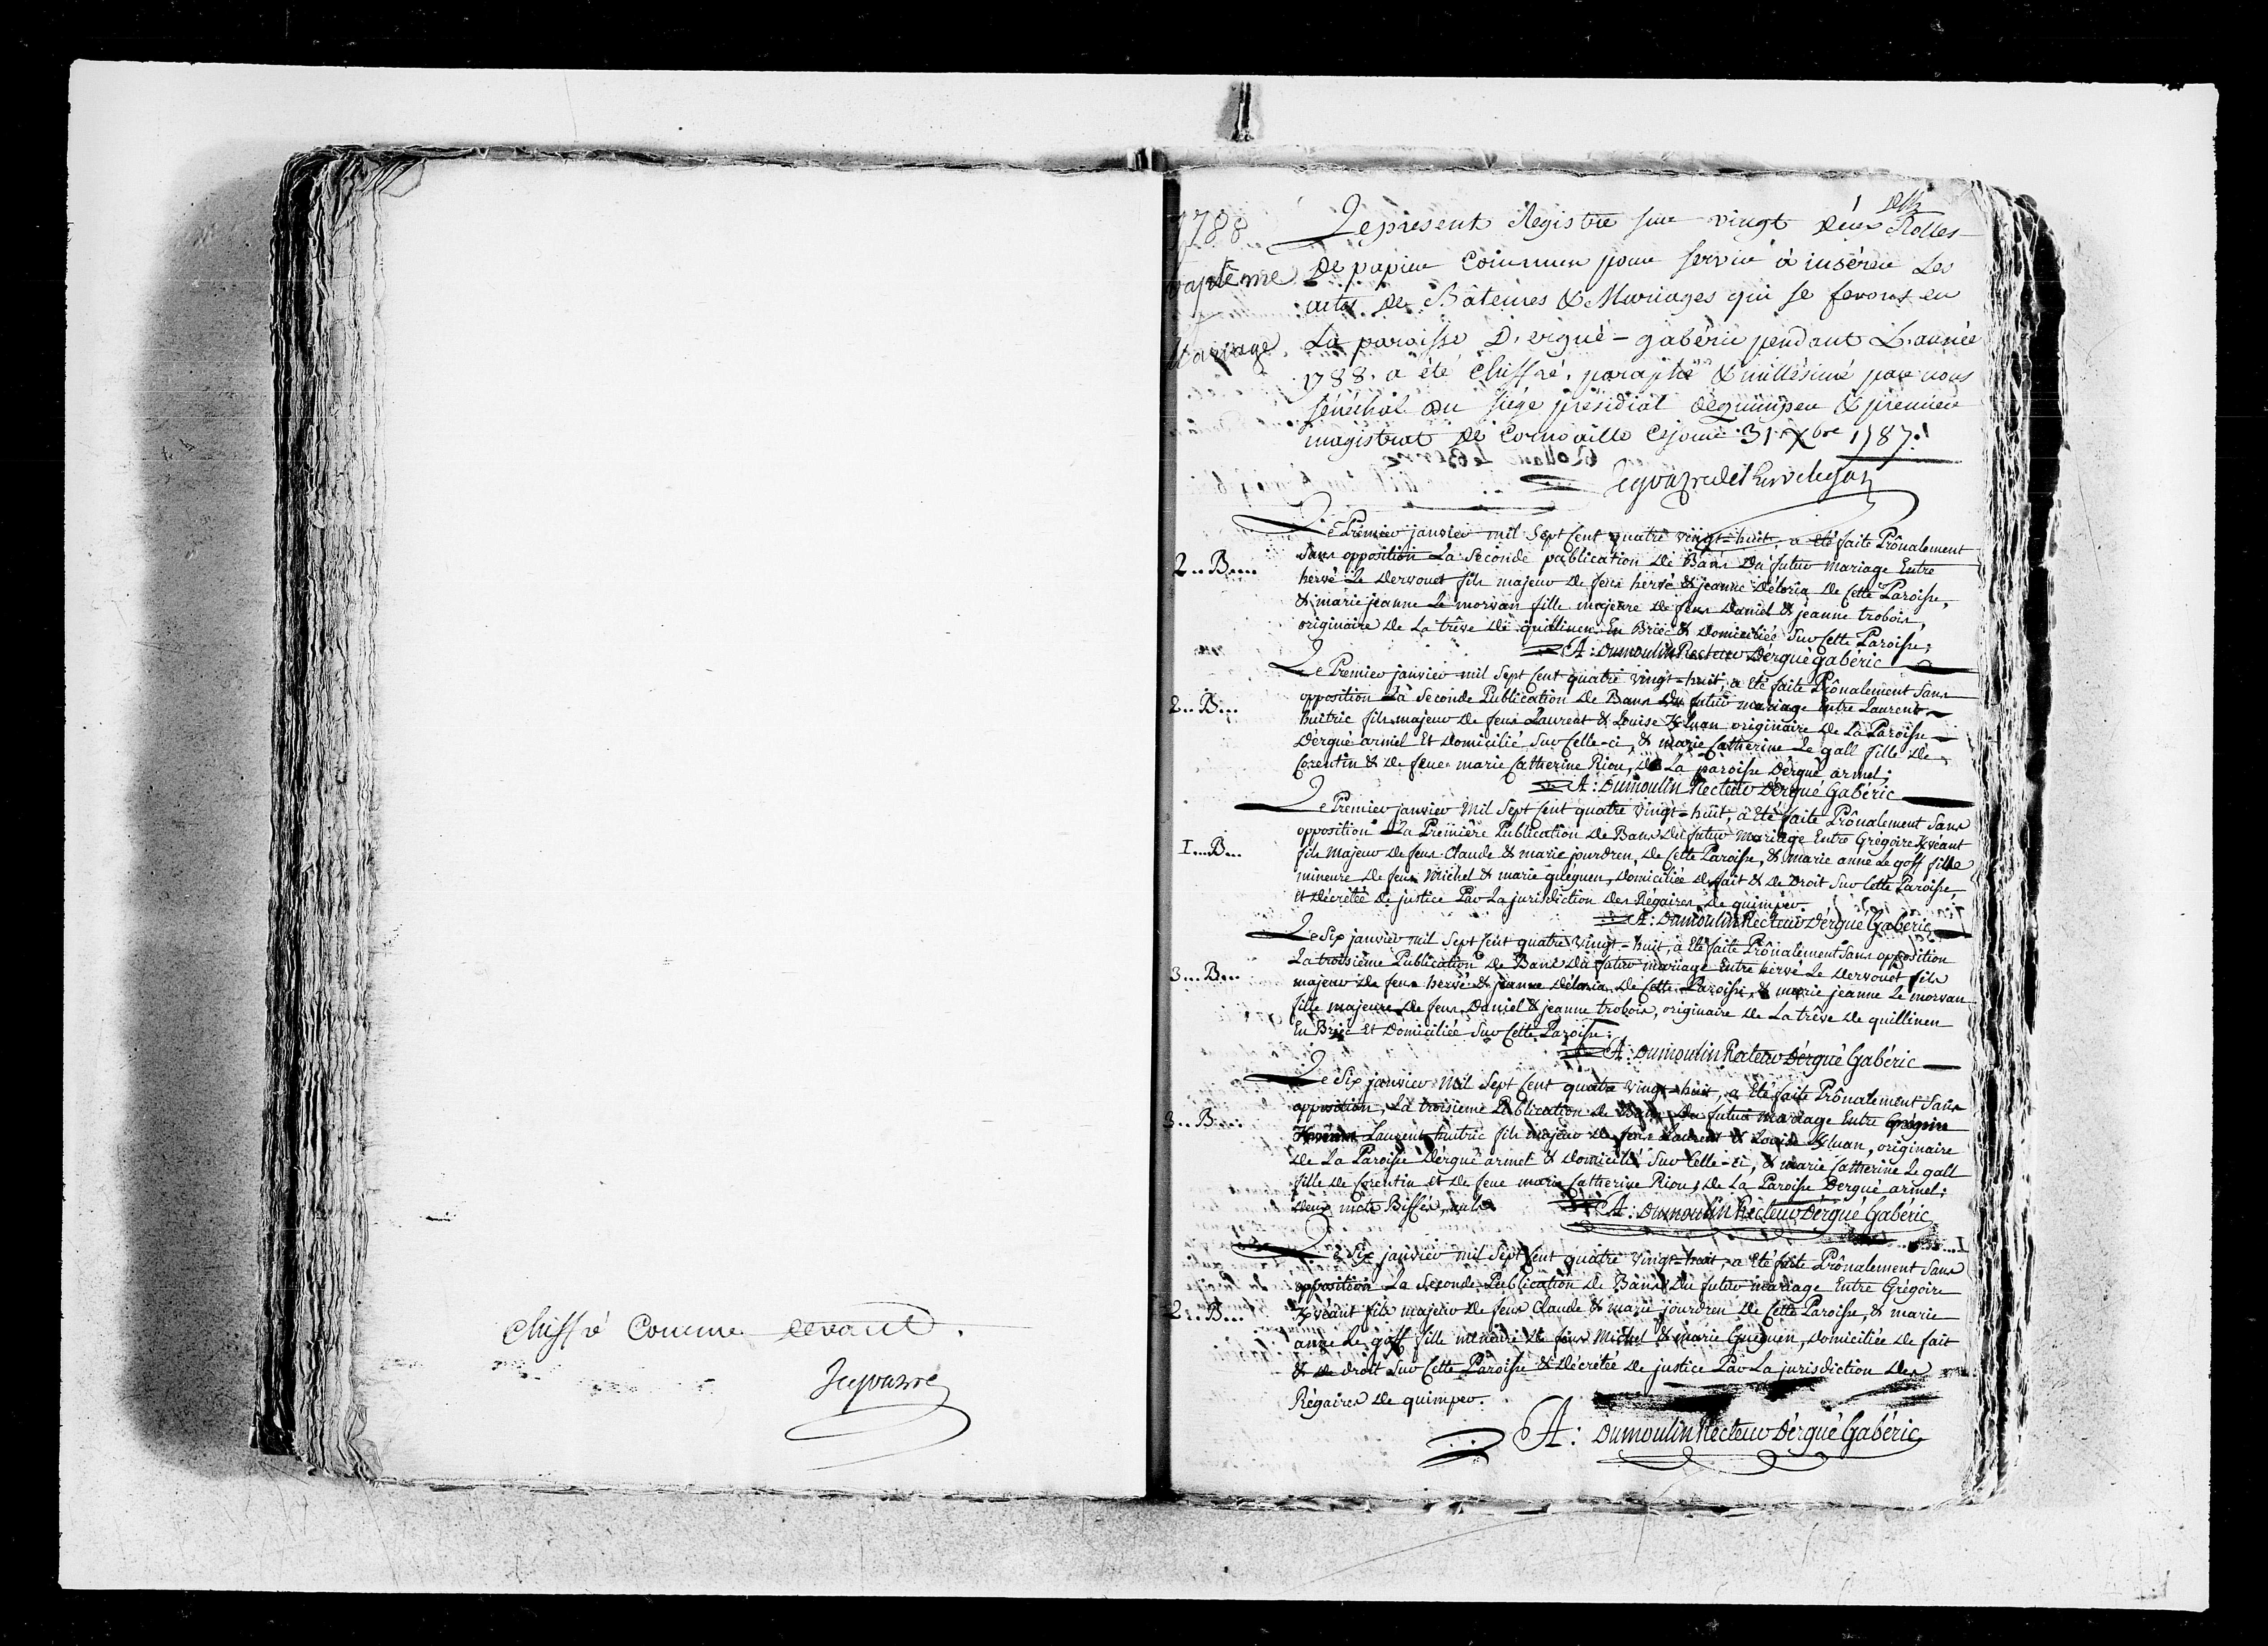 chiffré Comme devant.
1788
Baptême
Mariage
Le present Registre sur vingt Deux Rolles
De papier Commun pour servir à insérer Les
actes De Bâtemes & Mariages qui se feront en
La paroisse D'ergué-gabéric pendant L'année
1788. a été Chiffré, paraphé & millésimé par nous
sénéchal Du siége présidial de quimper & premier
magistrat De Cornouaille Ce jour 31. Xbre 1787.
2..B....
Le Premier janvier mil Sept Cent quatre vingt=huit, a Eté faite Prônalement
Sans opposition La Seconde publication De Bans Du futur Mariage Entre
hervé Le Dervouet fils majeur De feus hervé & jeanne Déloria De Cette Paroisse,
& marie jeanne Le morvan fille majeure De feus Daniel & jeanne trobois,
originaire De La trêve De quillinen En Briec & Domiciliée Sur Cette Paroisse;
A: Dumoulin Recteur D'ergué gabéric
2..B...
Le Premier janvier mil Sept Cent quatre vingt=huit, a Eté faite Prônalement Sans
opposition La Seconde Publication De Bans Du futur mariage Entre Laurent
huitric fils majeur De feus Laurent & Louise Kluan originaire De La Paroisse
D'ergué armel Et Domicilié Sur Celle-ci, & marie Catherine Le gall fille De
Corentin & De feue marie Catherine Riou, De La paroisse D'ergué armel;
A: Dumoulin Recteur D'ergué Gabéric
1...B...
Le Premier janvier Mil Sept Cent quatre vingt=huit, a Eté faite Prônalement Sans
opposition La Premiére Publication De Bans Du futur Mariage Entre Grégoire Kvéant
fils Majeur De feus Claude & marie jourdren, De Cette Paroisse, & marie anne Le goff fille
mineure De feus Michel & marie guéguen, Domiciliée De fait & De Droit Sur Cette Paroisse,
Et Décrétée De justice Par La jurisdiction Des Régaires De quimper.
A: Dumoulin Recteur D'ergué Gabéric
3...B...
Le Six janvier mil Sept Cent quatre vingt=huit, a Eté faite Prônalement Sans opposition
La troisiéme Publication De Bans Du futur mariage Entre hervé Le Dervouet fils
majeur De feus hervé & jeanne Déloria De Cette Paroisse, & marie jeanne Le morvan
fille majeure De feus Daniel & jeanne trobois, originaire De La trêve De quillinen
En Briec Et Domiciliée Sur Cette Paroisse;
A: Dumoulin Recteur D'ergué Gabéric
3..B...
Le Six janvier Mil Sept Cent quatre vingt=huit, a Eté faite Prônalement Sans
opposition, La troisiéme Publication De Bans Du futur mariage Entre Grégoire
Kvéant Laurent huitric fils majeur De feus Laurent & Louise Kluan, originaire
De La Paroisse D'ergué armel & Domicilié Sur Celle-ci, & marie Catherine Le gall
fille De Corentin et De feue marie Catherine Riou, De La Paroisse D'ergué armel;
Deux mots Biffés, nuls
A: Dumoulin Recteur D'ergué Gabéric
2..B...
Le Six janvier mil Sept Cent quatre vingt=huit, a Eté faite Prônalement Sans
opposition La Seconde Publication De Bans Du futur mariage Entre Grégoire
Kvéant fils majeur De feus Claude & marie jourdren De Cette Paroisse, & marie
anne Le goff fille mineure De feus Michel & marie Guéguen, Domiciliée De fait
& De droit Sur Cette Paroisse & Décrétée De justice Par La jurisdiction Des
Régaires De quimper.
A: Dumoulin Recteur D'ergué Gabéric